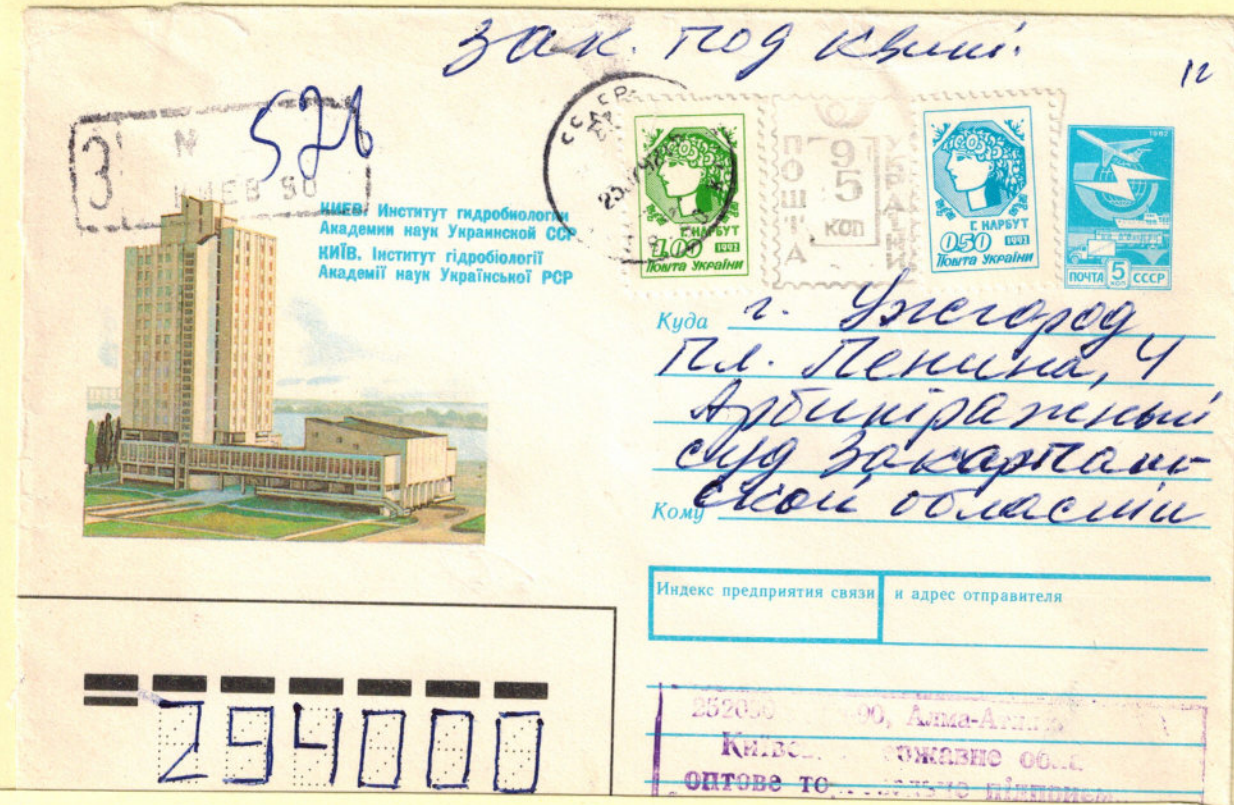 Зак. под квит.
12
З
N 576
КИЕВ 90
КИЕВ. Институт гидробиологии
Академии наук Украинской ССР
КИЇВ. Інститут гідробіології
Академії наук Української РСР
СССР
1.00 1992
Г. НАРБУТ
Пошта України
ПОШТА
95
КОП
УКРАЇНИ
Г. НАРБУТ
0.50 1992
Пошта України
1982
ПОЧТА 5 КОП СССР
Куда г. Ужгород
пл. Ленина, 4
Арбитражный
суд Закарпат-
Кому ской области
Индекс предприятия связи и адрес отправителя
294000
90, Алма-Ат
оптове